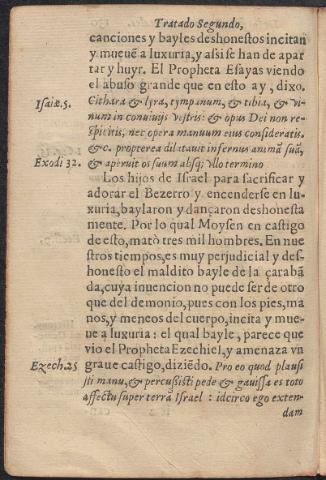 Tratado Segundo,
canciones y bayles deshonestos incitan
y mueuē a luxuria, y assi se han de apar
tar y huyr. El Propheta Esayas viendo
el abuso grande que en esto ay, dixo.
Isaiæ.5. Cithara & lyra, tympanum, & tibia, & vi-
num in conuiuijs vestris: & opus Dei non re-
spicitis, nec opera manuum eius consideratis.
&c. propterea dilatauit infernus animā suā,
Exodi 32. & aperuit os suum absq; vllo termino
Los hijos de Israel para sacrificar y
adorar el Bezerro y encenderse en lu-
xuria, baylaron y dançaron deshonesta
mente. Por lo qual Moysen en castigo
de esto, matò tres mil hombres. En nue
stros tiempos, es muy perjudicial y des-
honesto el maldito bayle de la çarabā
da, cuya inuencion no puede ser de otro
que del demonio, pues con los pies, ma
nos, y meneos del cuerpo, incita y mue-
ue a luxuria: el qual bayle, parece que
vio el Propheta Ezechiel, y amenaza vn
Ezech.25 graue castigo, diziēdo. Pro eo quod plausi
sti manu, & percussisti pede & gauissa es toto
affectu super terrā Israel: idcirco ego exten-
dam